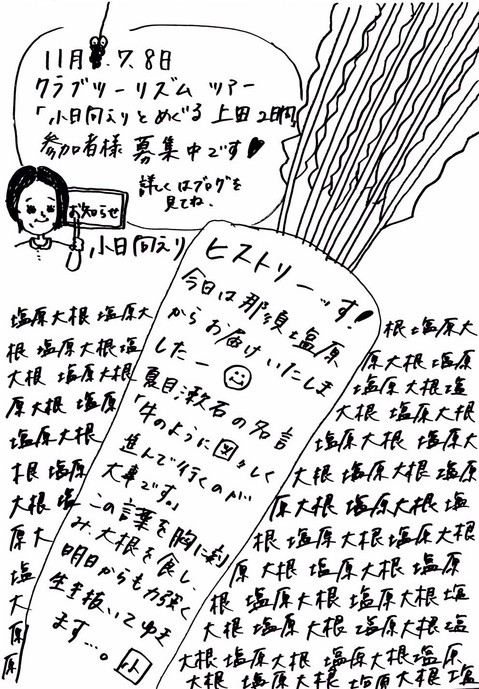 11月.7.8日
クラブツーリズム ツアー
「小日向えりとめぐる 上田2日間
参加者様 募集中です♥
詳しくはブログを
見てね。
お知らせ
小日向えり
ヒストリーッす!
今日は那須塩原
からお届けいたしま
したー
夏目漱石の名言
「牛のように図々しく
進んで行くのが
大事です。」
この言葉を胸に刻
み、大根を食し、
明日からも力強く
生き抜いてゆき
ます…。小
塩原大根 塩原大
根 塩原大根塩
大根 塩原大根
原大根 塩原
塩原大根
根 塩原
大根 塩
原大
塩
大
原
原
根塩原大
原大根 塩原
塩原大根塩
大根 塩原大根
塩原大根 塩原大
大根 塩原大根塩原
原大根 塩原大根塩
根 塩原大根塩原大根
原 大根 塩原大根 塩原
根 塩原大根 塩原大根塩
大根 塩原大根 塩原大根塩
大根塩原大根 塩原大根塩原
大根 塩原大根 塩原大根塩